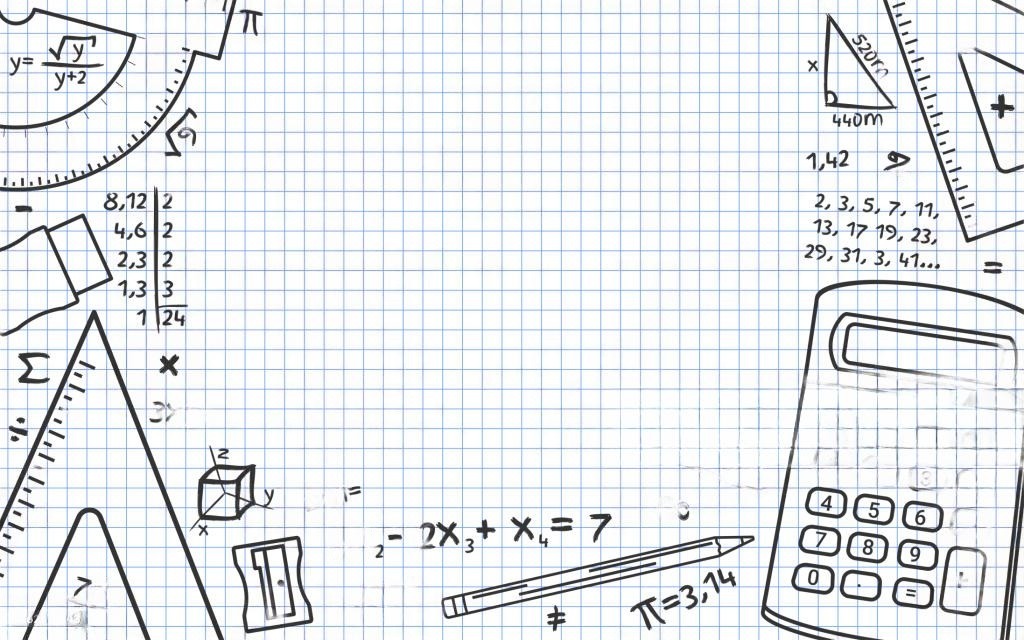 π
y= √y / y+2
√9
-
8,12 | 2
4,6 | 2
2,3 | 2
1,3 | 3
1 | 24
Σ
×
÷
z
y
x
=
₂- 2x₃+ x₄ = 7
π=3,14
≠
7
x
520m
440m
+
1,42
>
2, 3, 5, 7, 11,
13, 17 19, 23,
29, 31, 3, 41...
=
4 5 6
7 8 9
0 . =